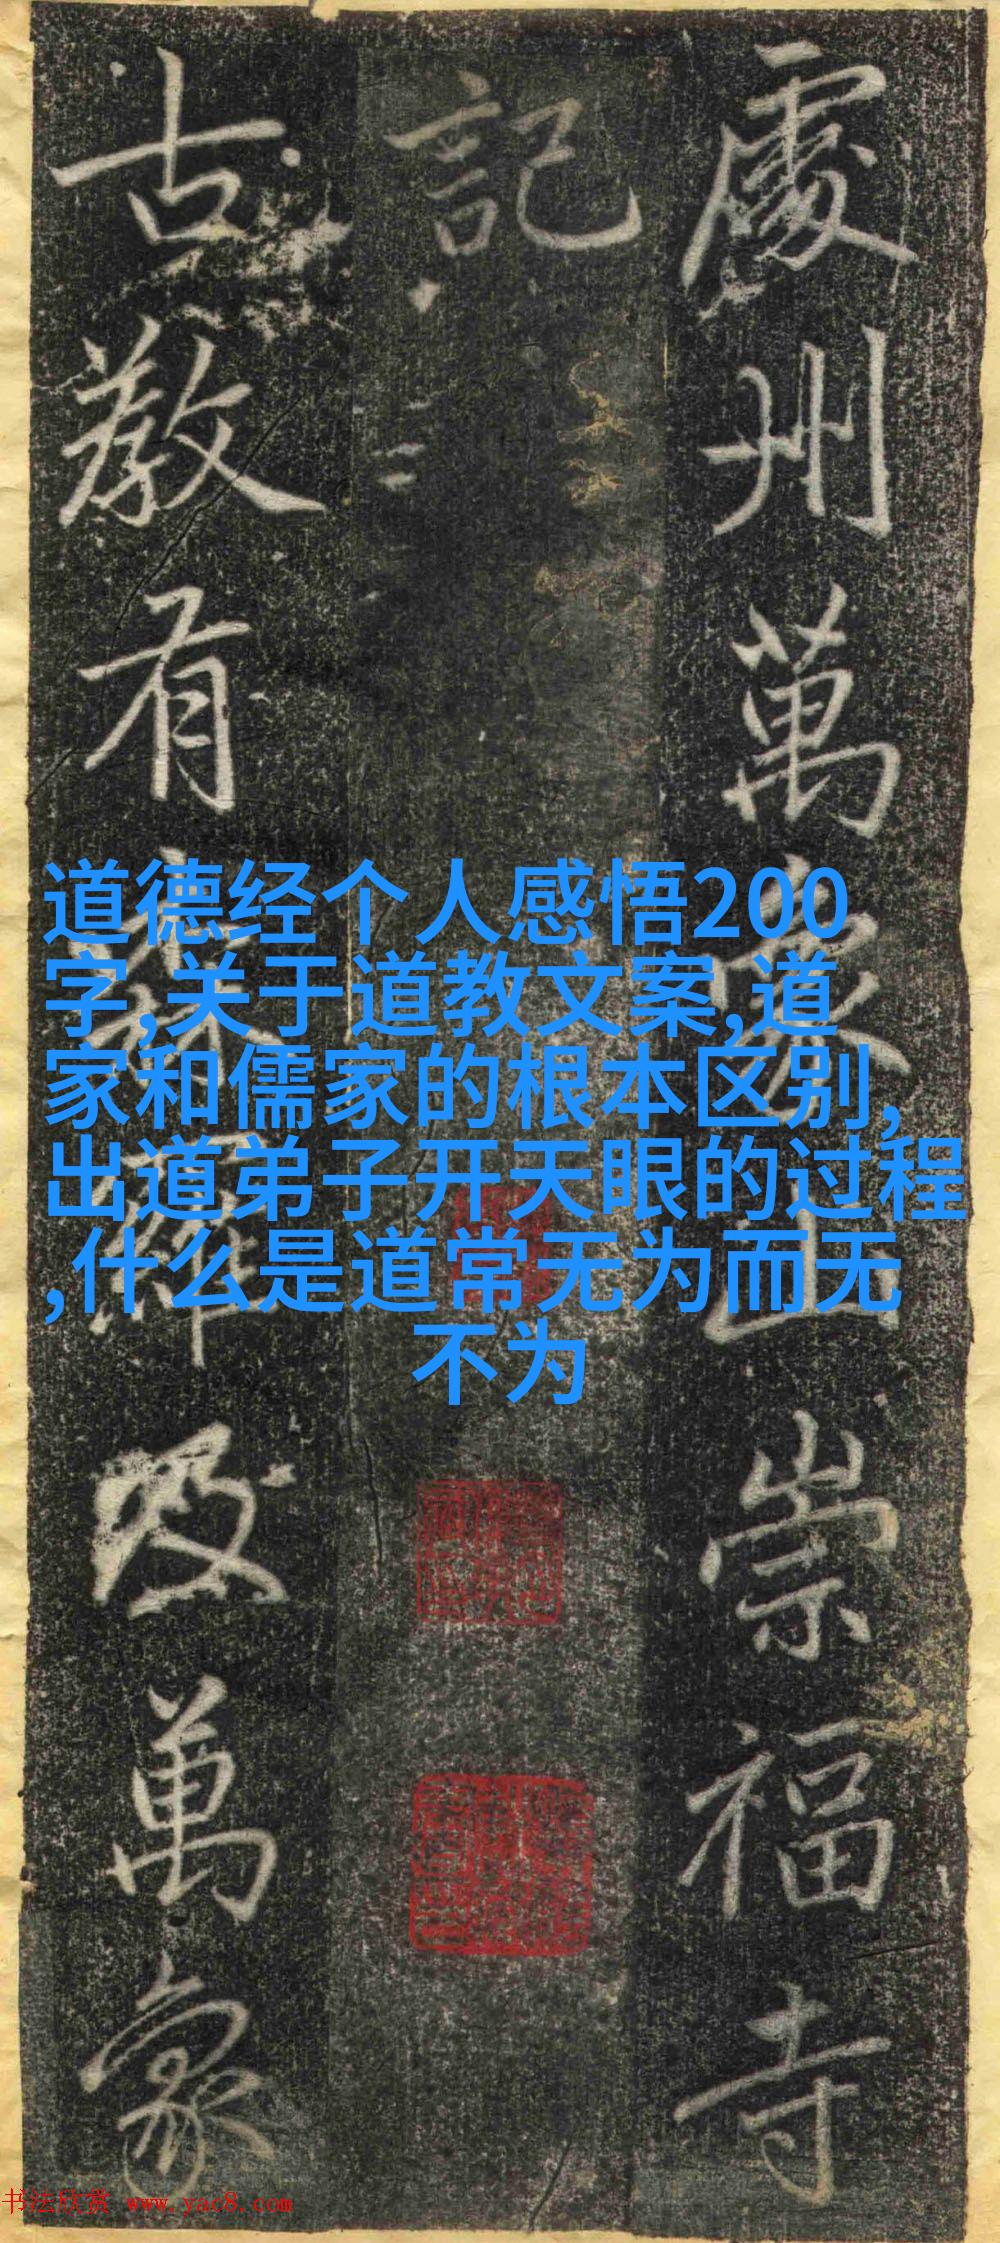 處州萬象山崇福寺
記
古教有森羅及萬象
道德经个人感悟200
字,关于道教文案,道
家和儒家的根本区别,
出道弟子开天眼的过程
,什么是道常无为而无
不为
书法欣赏 www.yac8.com